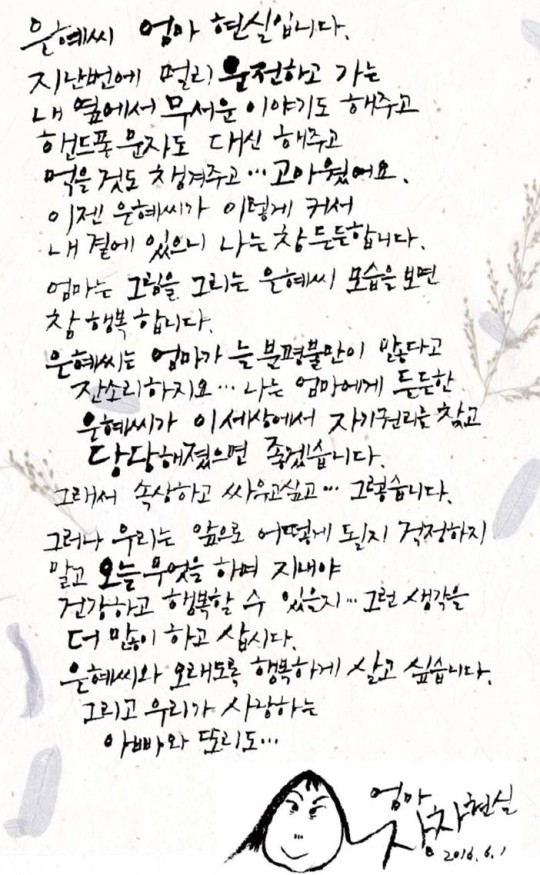 은혜씨 엄마 현실입니다.
지난번에 멀리 운전하고 가는
내 옆에서 무서운 이야기도 해주고
핸드폰 문자도 대신 해주고
먹을 것도 챙겨주고... 고마웠어요.
이젠 은혜씨가 이렇게 커서
내 곁에 있으니 나는 참 든든합니다.
엄마는 그림을 그리는 은혜씨 모습을 보면
참 행복합니다.
은혜씨는 엄마가 늘 불평불만이 많다고
잔소리하지요... 나는 엄마에게 든든한
은혜씨가 이 세상에서 자기권리를 찾고
당당해졌으면 좋겠습니다.
그래서 속상하고 싸우고싶고... 그렇습니다.
그러나 우리는 앞으로 어떻게 될지 걱정하지
말고 오늘 무엇을 하며 지내야
건강하고 행복할 수 있을지... 그런 생각을
더 많이 하고 삽시다.
은혜씨와 오래도록 행복하게 살고 싶습니다.
그리고 우리가 사랑하는
아빠와 또리도...
엄마
장차현실
2016.6.1